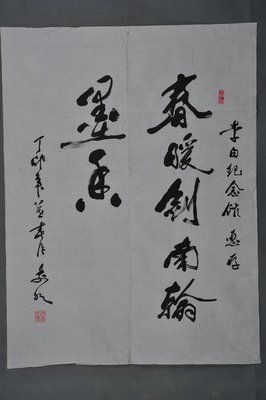 李白纪念馆惠存
春暖剑南翰
墨香
丁卯年